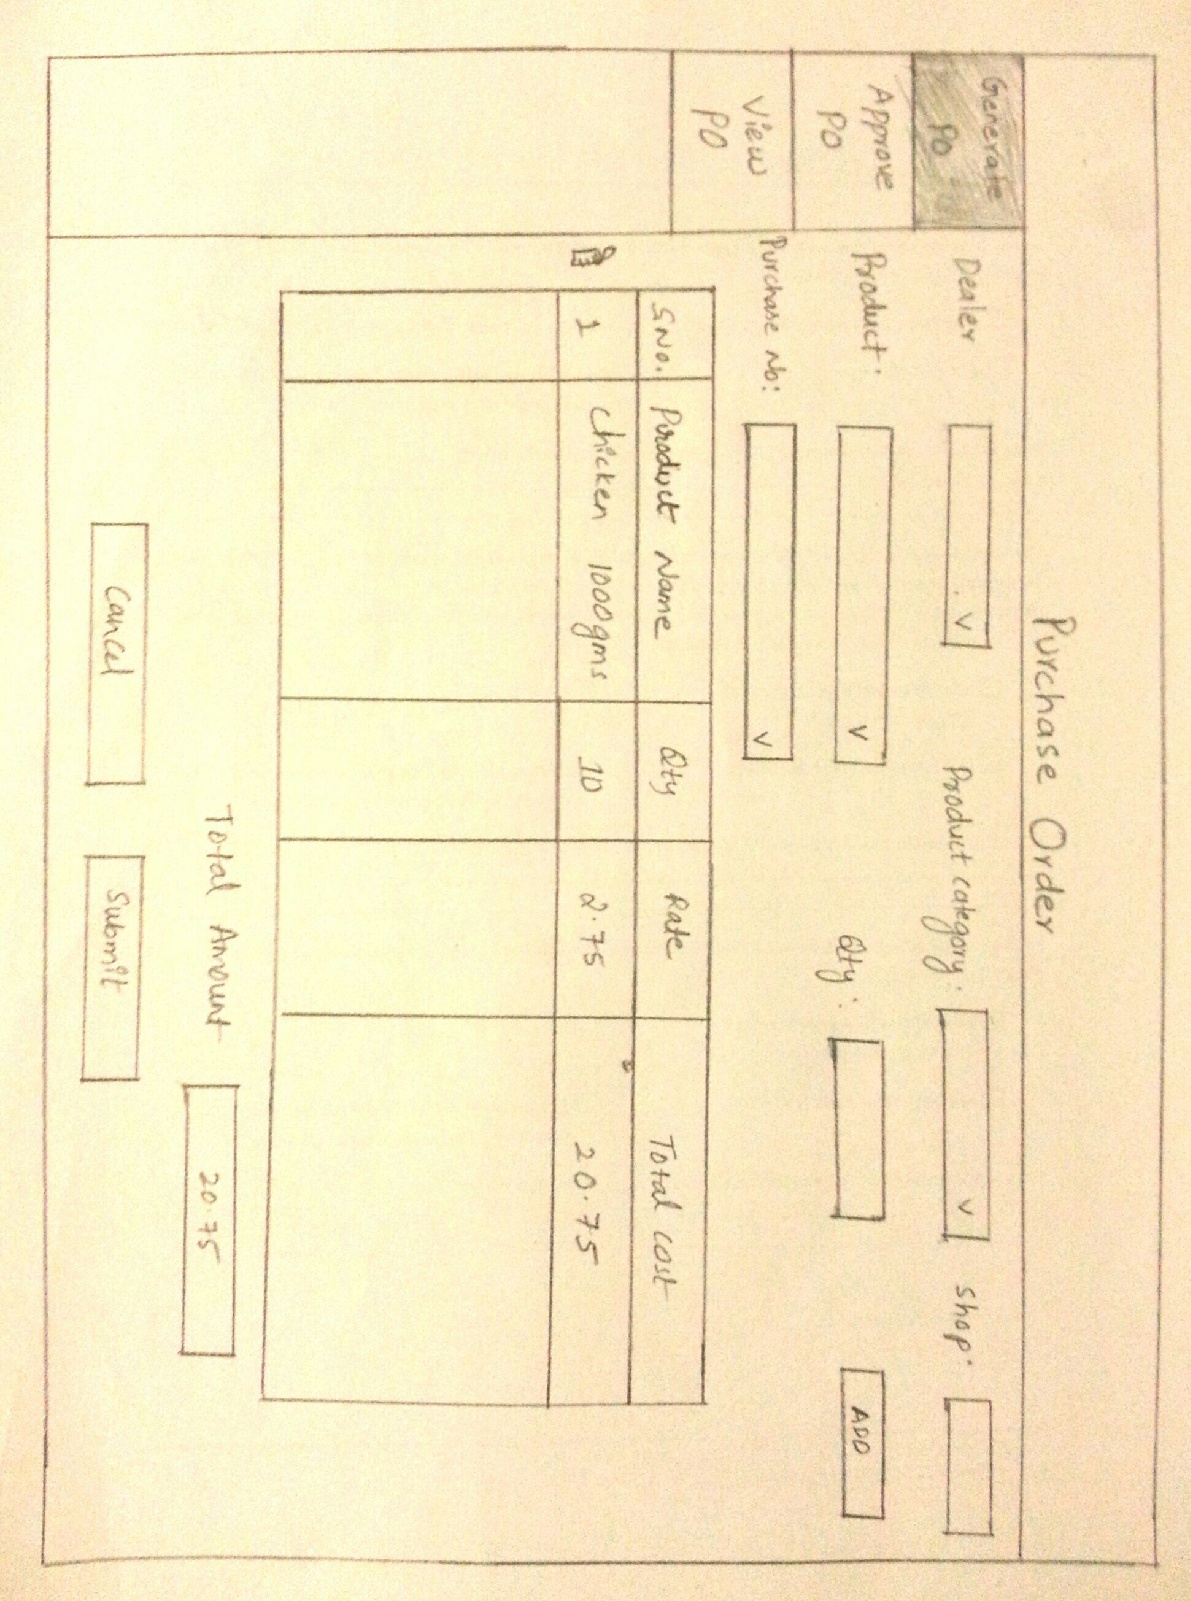 Purchase Order
Generate
PO
Approve
PO
View
PO
Dealer v Product category: v shop:
Product: v Qty: ADD
Purchase No: v
S No. Product Name Qty Rate Total cost
1 chicken 1000gms 10 2.75 20.75
Total Amount 20.75
Cancel Submit